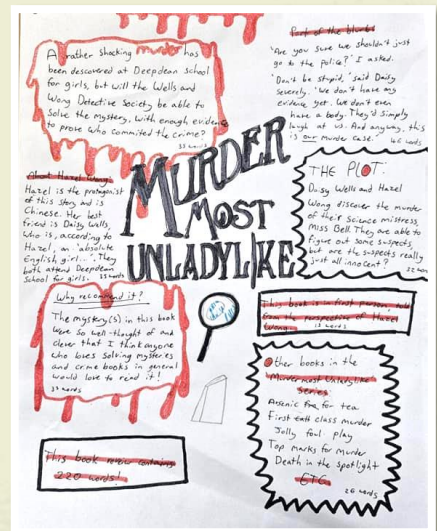 A rather shocking murder has
been descovered at Deepdean school
for girls, but will the Wells and
Wong Detective Society be able to
solve the mystery, with enough evidence
to prove who commited the crime?
35 words
Part of the blurb:
'Are you sure we shouldn't just
go to the police?' I asked.
'Don't be stupid,' said Daisy
severely. 'We don't have any
evidence yet. We don't even
have a body. They'd simply
laugh at us. And anyway, this
is our murder case.' 46 words
MURDER
MOST
UNLADYLIKE
About Hazel Wong:
Hazel is the protagonist
of this story and is
Chinese. Her best
friend is Daisy Wells,
who is, according to
Hazel, an 'absolute
English girl...'. They
both attend Deepdean
School for girls.
THE PLOT:
Daisy Wells and Hazel
Wong discover the murder
of their Science mistress,
Miss Bell. They are able to
figure out some suspects,
but are the suspects really
just all innocent?
Why recommend it?
The mystery(s) in this book
were so well-thought of and
clever that I think anyone
who loves solving mysteries
and crime books in general
would love to read it!
This book is first person, told
from the perspective of Hazel
Wong.
Other books in the
Murder most Unladylike
Series:
Arsenic for tea
First class murder
Jolly foul play
Top marks for murder
Death in the spotlight
ETC
26 words
This book review contains
220 words!